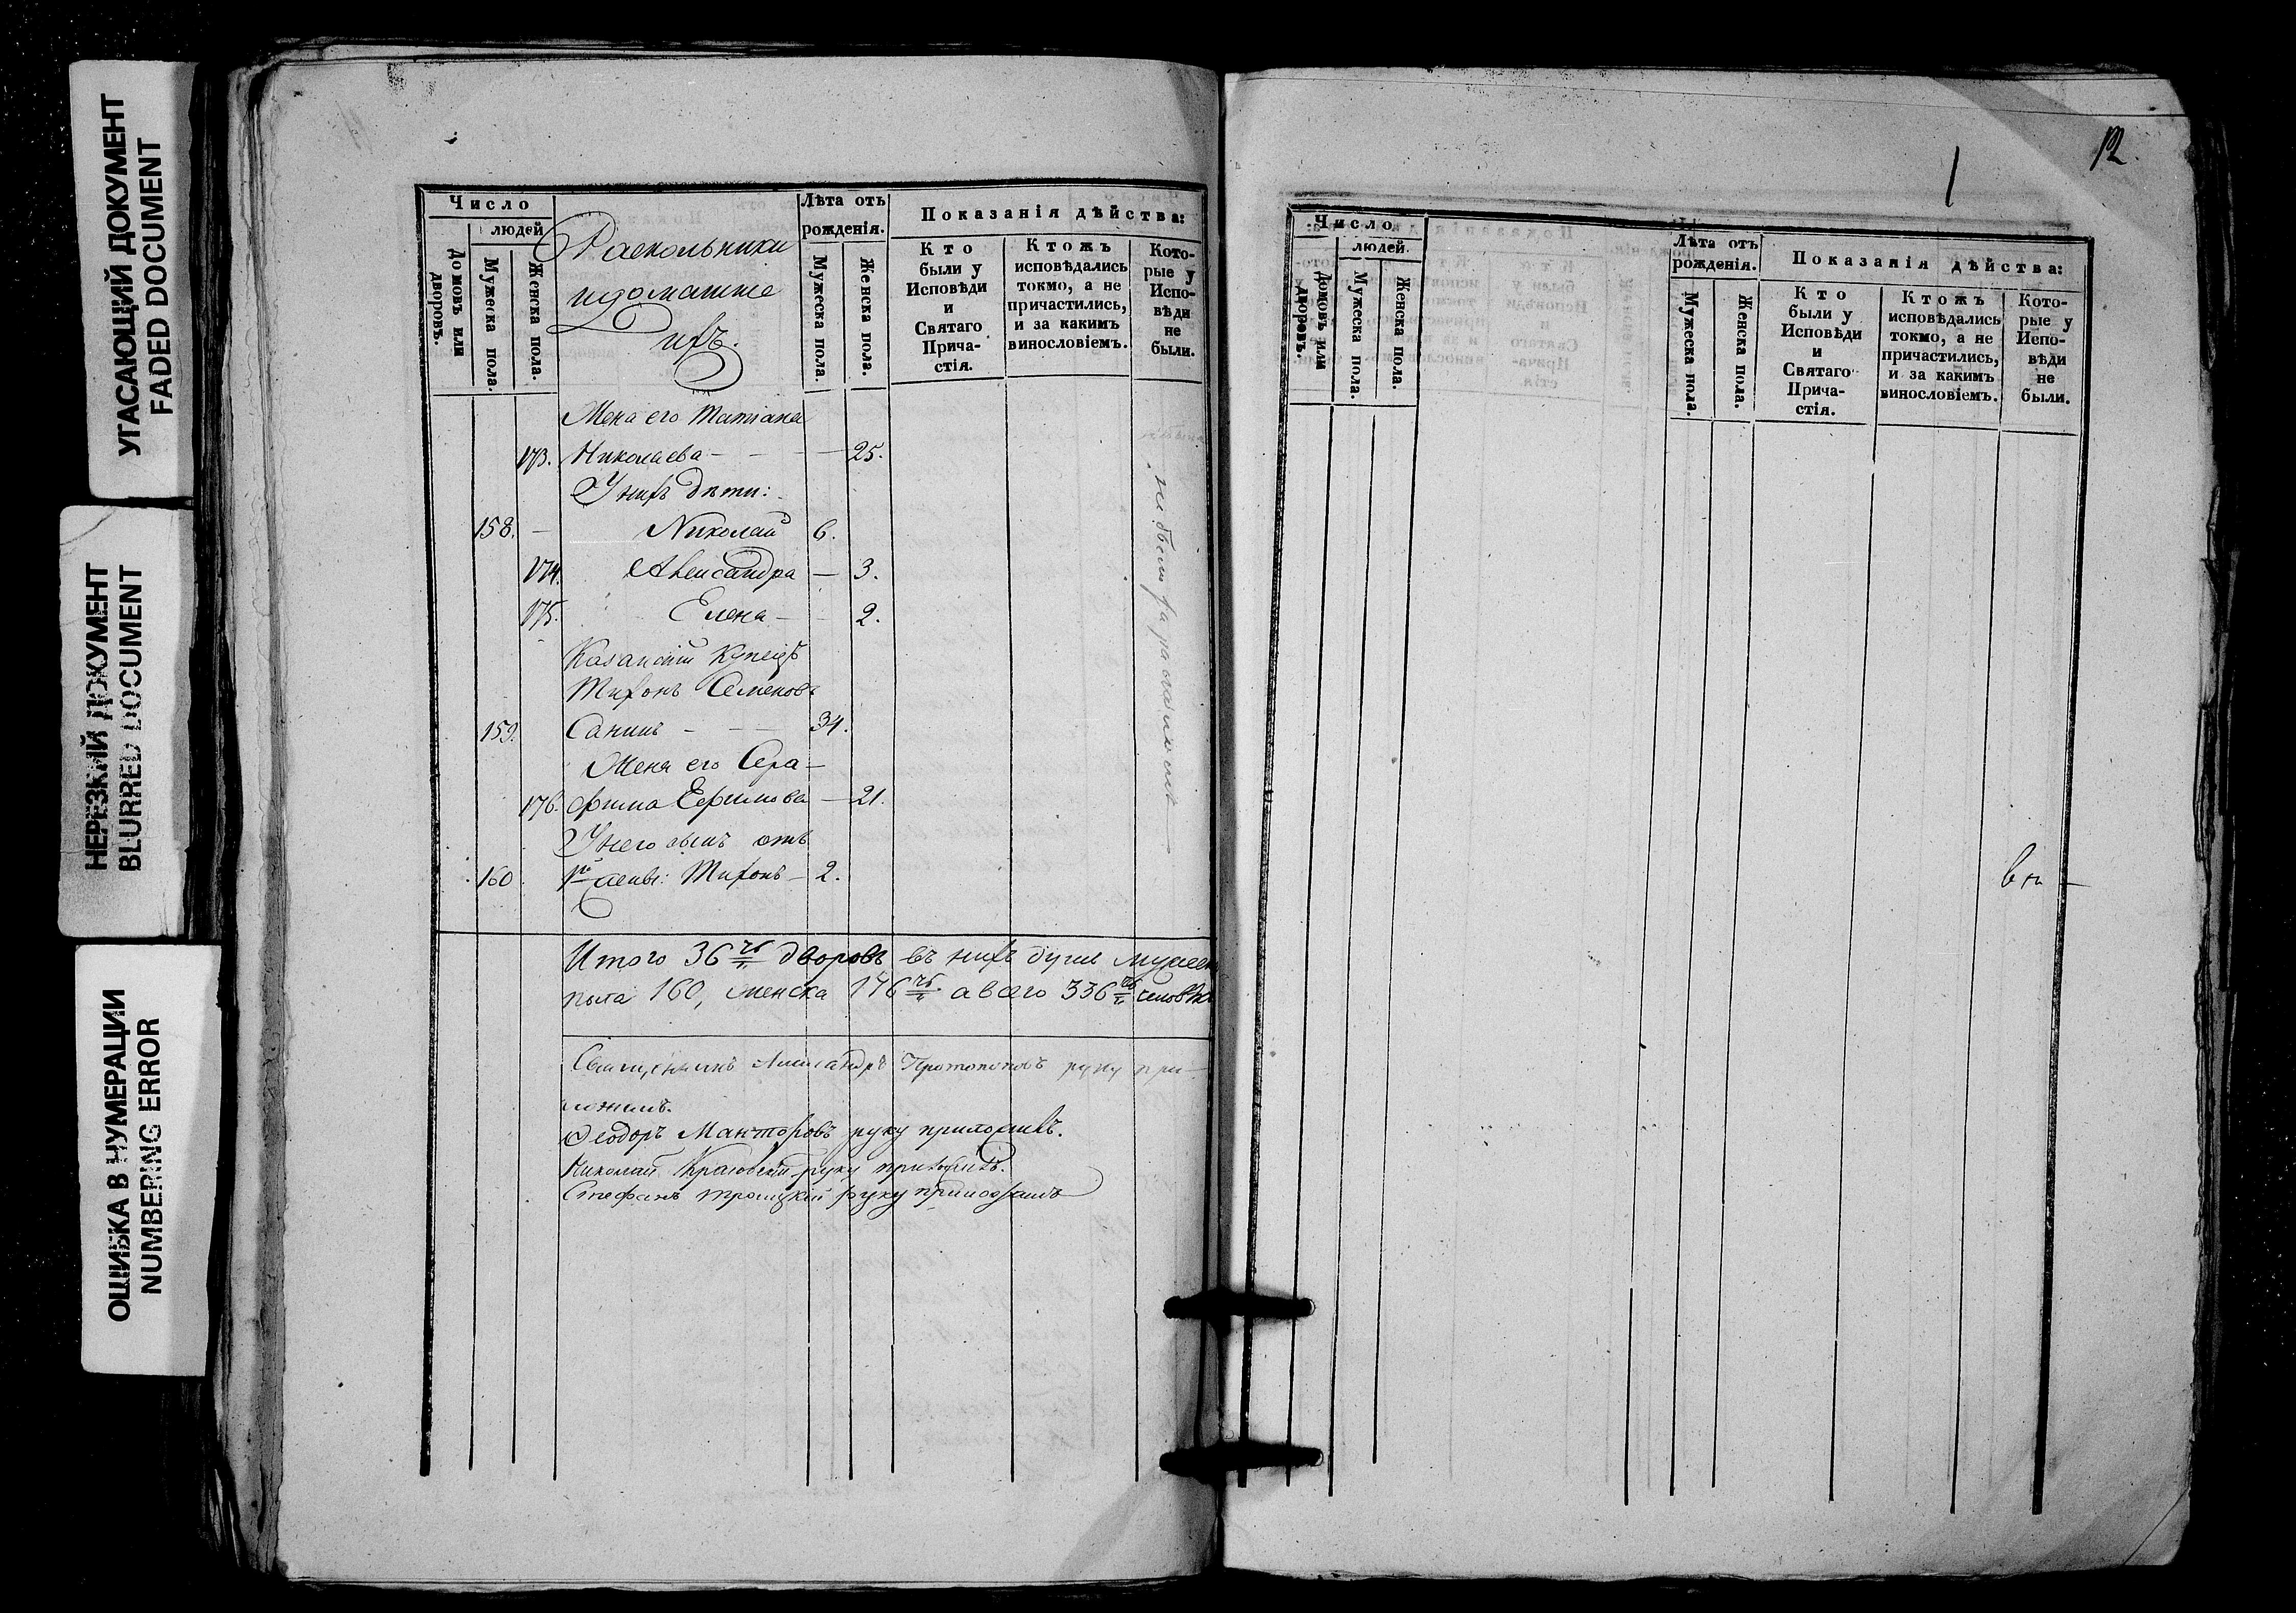 УГАСАЮЩИЙ ДОКУМЕНТ
FADED DOCUMENT
НЕРЕЗКИЙ ДОКУМЕНТ
BLURRED DOCUMENT
ОШИБКА В НУМЕРАЦИИ
NUMBERING ERROR
Число
людей
Домовъ или дворовъ.
Мужеска пола.
Женска пола.
Раскольники
и домашніе
ихъ.
Лѣта отъ рожденія.
Мужеска пола.
Женска пола.
Показанія дѣйства:
Кто были у Исповѣди и Святаго Прича-стія.
Ктожъ исповѣдались токмо, а не причастились, и за какимъ винословіемъ.
Кото-рые у Испо-вѣди не были.
Жена его Татіана
173. Николаева — — — 25.
У нихъ дѣти:
158. — Николай 6.
174. Александра — 3.
175. Елена — — 2.
Казанскій купецъ
Тихонъ Семеновъ
159. Санинъ — — 34.
Жена его Сера-
176. фима Ефимова — 21.
У него сынъ отъ
160. 1й жены: Тихонъ — 2.
не были за расколомъ
Итого 36ть дворовъ въ нихъ душъ мужеска
пола 160, женска 176ть а всего 336ть человѣкъ
Священникъ Александръ Протопоповъ руку при-
ложилъ.
Ѳеодоръ Манторовъ руку приложилъ.
Николай руку приложилъ.
Стефанъ Троицкій руку приложилъ
12.
Число
людей.
Домовъ или дворовъ.
Мужеска пола.
Женска пола.
Лѣта отъ рожденія.
Мужеска пола.
Женска пола.
Показанія дѣйства:
Кто были у Исповѣди и Святаго Прича-стія.
Ктожъ исповѣдались токмо, а не причастились, и за какимъ винословіемъ.
Кото-рые у Испо-вѣди не были.